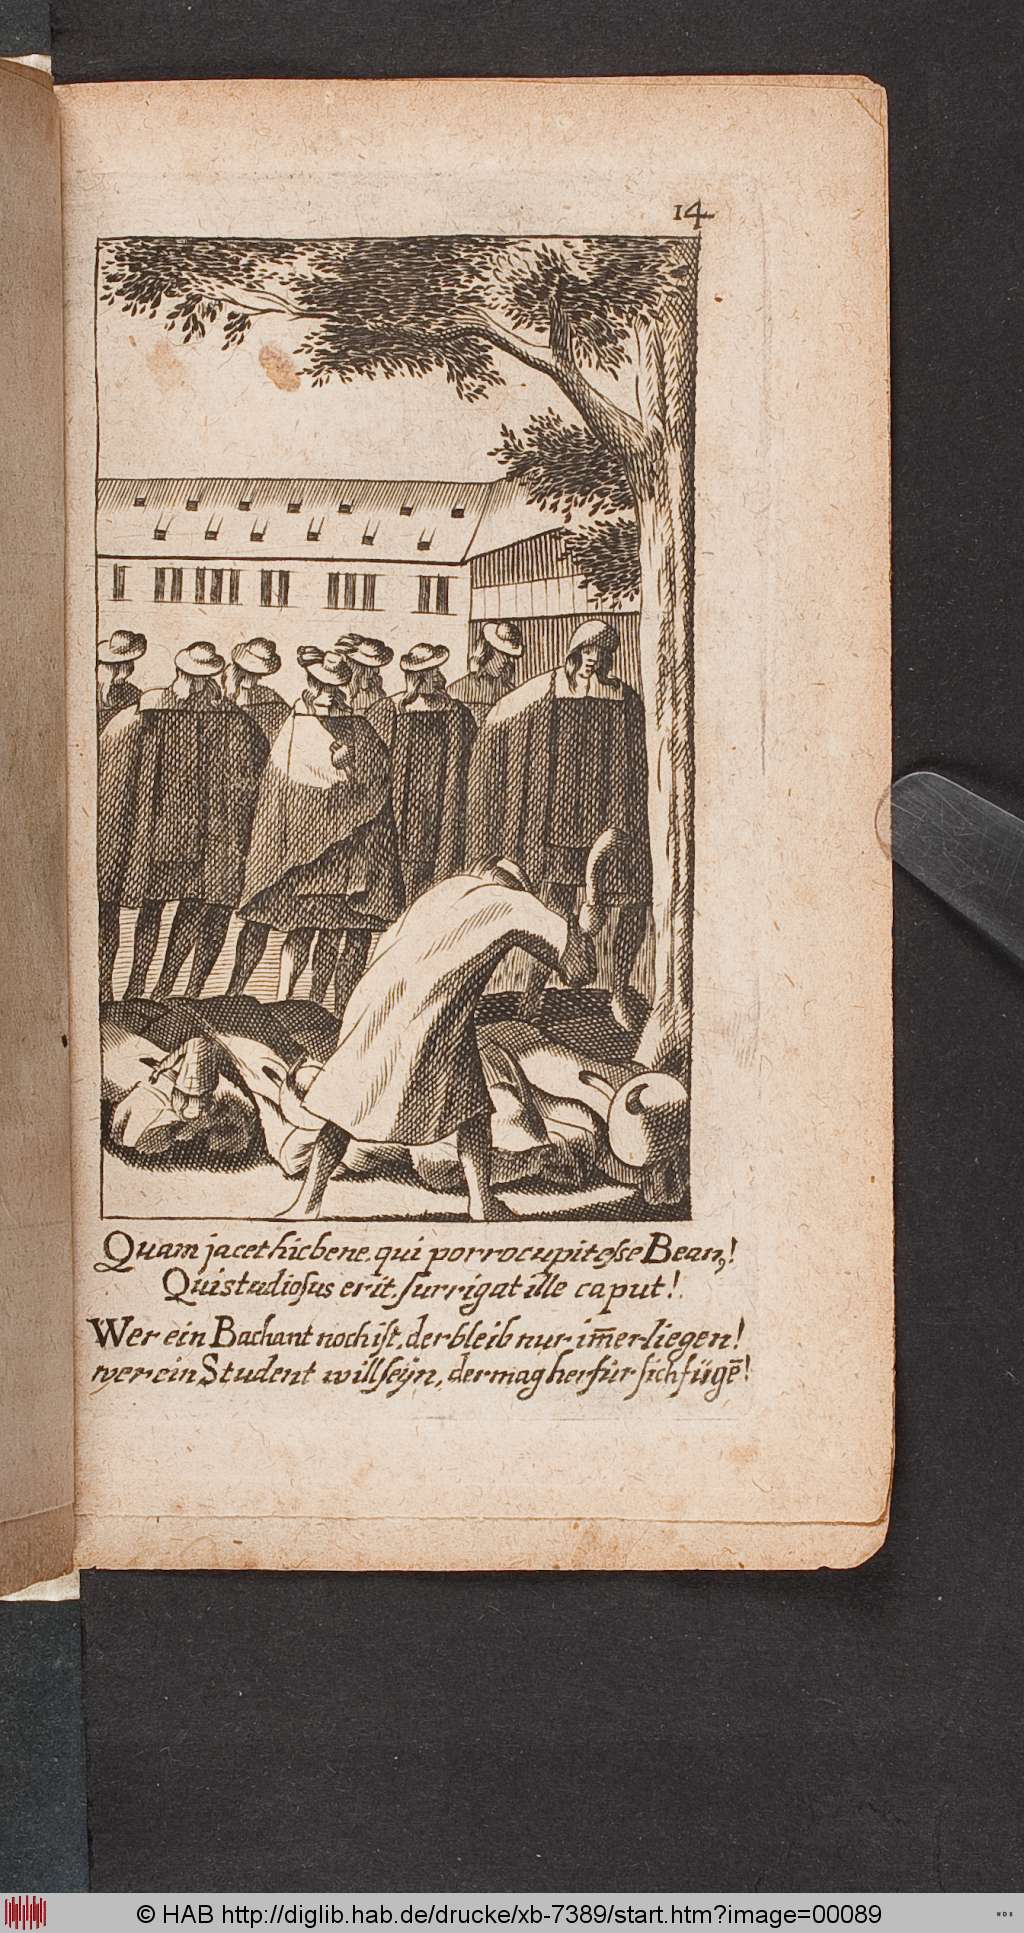 14
Quam jacet hic bene, qui porro cupit eſse Bean,!
Qui studioſus erit, ſurrigat ille caput!
Wer ein Bachant noch iſt, der bleib nur im̅er liegen!
wer ein Student will ſeÿn, der mag herfür ſich füge̅!
© HAB http://diglib.hab.de/drucke/xb-7389/start.htm?image=00089